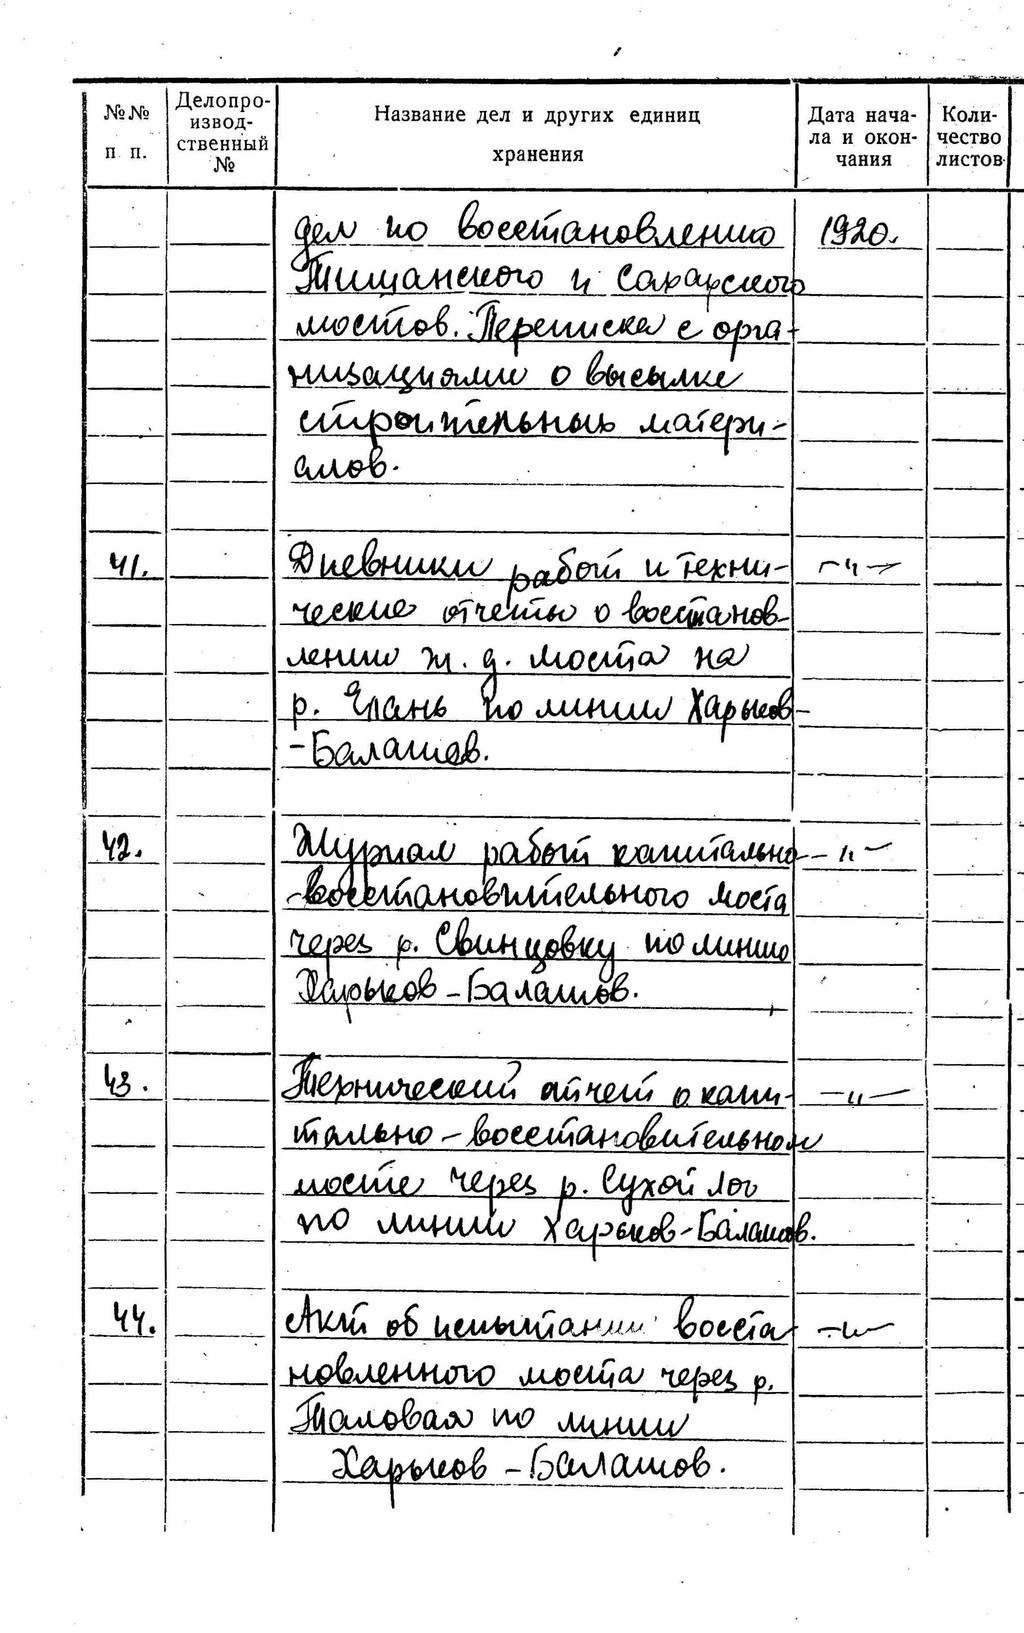 №№ п. п.
Делопроизвод-ственный №
Название дел и других единиц хранения
Дата начала и окончания
Количество листов
дел по восстановлению 1920.
Тишанского и Сахарского
мостов. Переписка с орга-
низациями о высылке
строительных матери-
алов.
41. Дневники работ и техни- -"-
ческие отчеты о восстанов-
лении ж. д. моста на
р. Елань по линии Харьков-
-Балашов.
42. Журнал работ капитально -"-
-восстановительного моста
через р. Свинцовку по линии
Харьков-Балашов.
43. Технический отчет о капи- -"-
тально-восстановительном
мосте через р. Сухой Лог
по линии Харьков-Балашов.
44. Акт об испытании восста- -"-
новленного моста через р.
Таловая по линии
Харьков-Балашов.